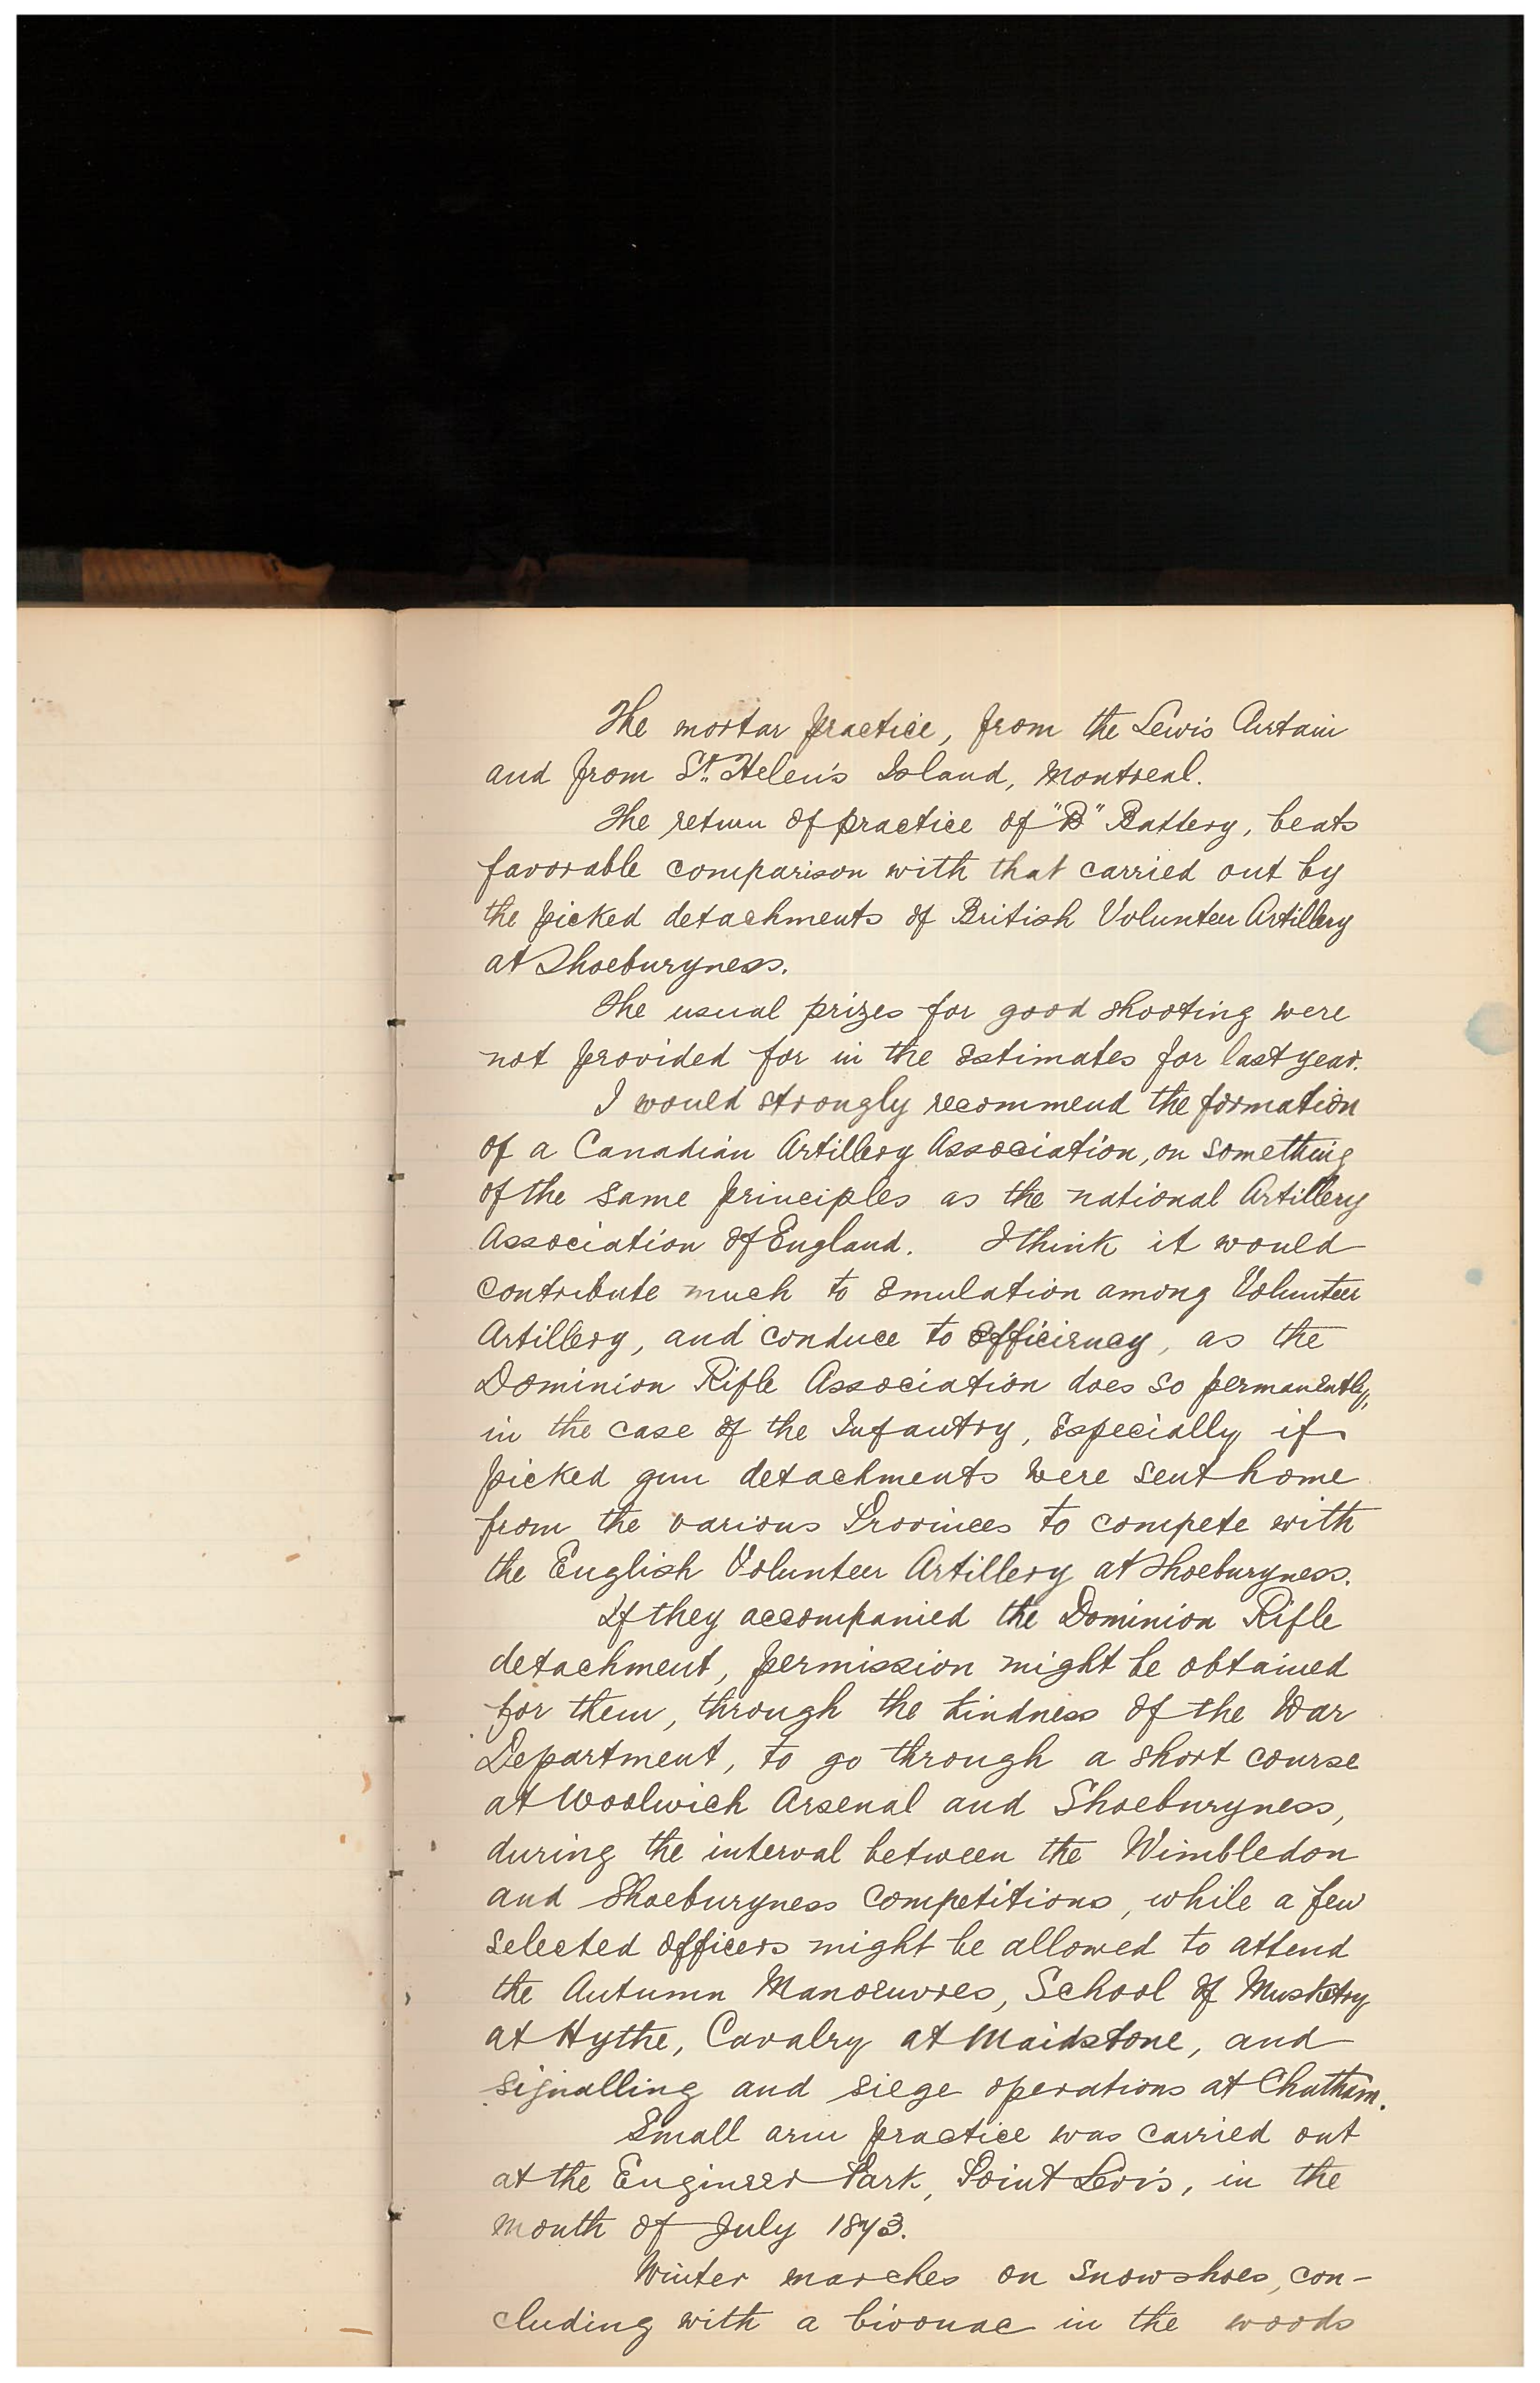 The mortar practice, from the Lewis Curtain
and from St. Helen's Island, Montreal.
The return of practice of "B" Battery, bears
favorable comparison with that carried out by
the picked detachments of British Volunteer Artillery
at Shoeburyness.
The usual prizes for good shooting were
not provided for in the estimates for last year.
I would strongly recommend the formation
of a Canadian Artillery Association, on something
of the same principles as the national Artillery
Association of England. I think it would
contribute much to emulation among Volunteer
Artillery, and conduce to efficiency, as the
Dominion Rifle Association does so permanently,
in the case of the Infantry, Especially if
picked gun detachments were sent home
from the various Provinces to compete with
the English Volunteer Artillery at Shoeburyness.
If they accompanied the Dominion Rifle
detachment, permission might be obtained
for them, through the kindness of the War
Department, to go through a short course
at Woolwich Arsenal and Shoeburyness,
during the interval between the Wimbledon
and Shoeburyness Competitions, while a few
selected officers might be allowed to attend
the Autumn Manoeuvres, School of Musketry
at Hythe, Cavalry at Maidstone, and
signalling and siege operations at Chatham.
Small arm practice was carried out
at the Engineer Park, Point Levis, in the
month of July 1873.
Winter marches on snowshoes, con-
cluding with a bivouac in the woods